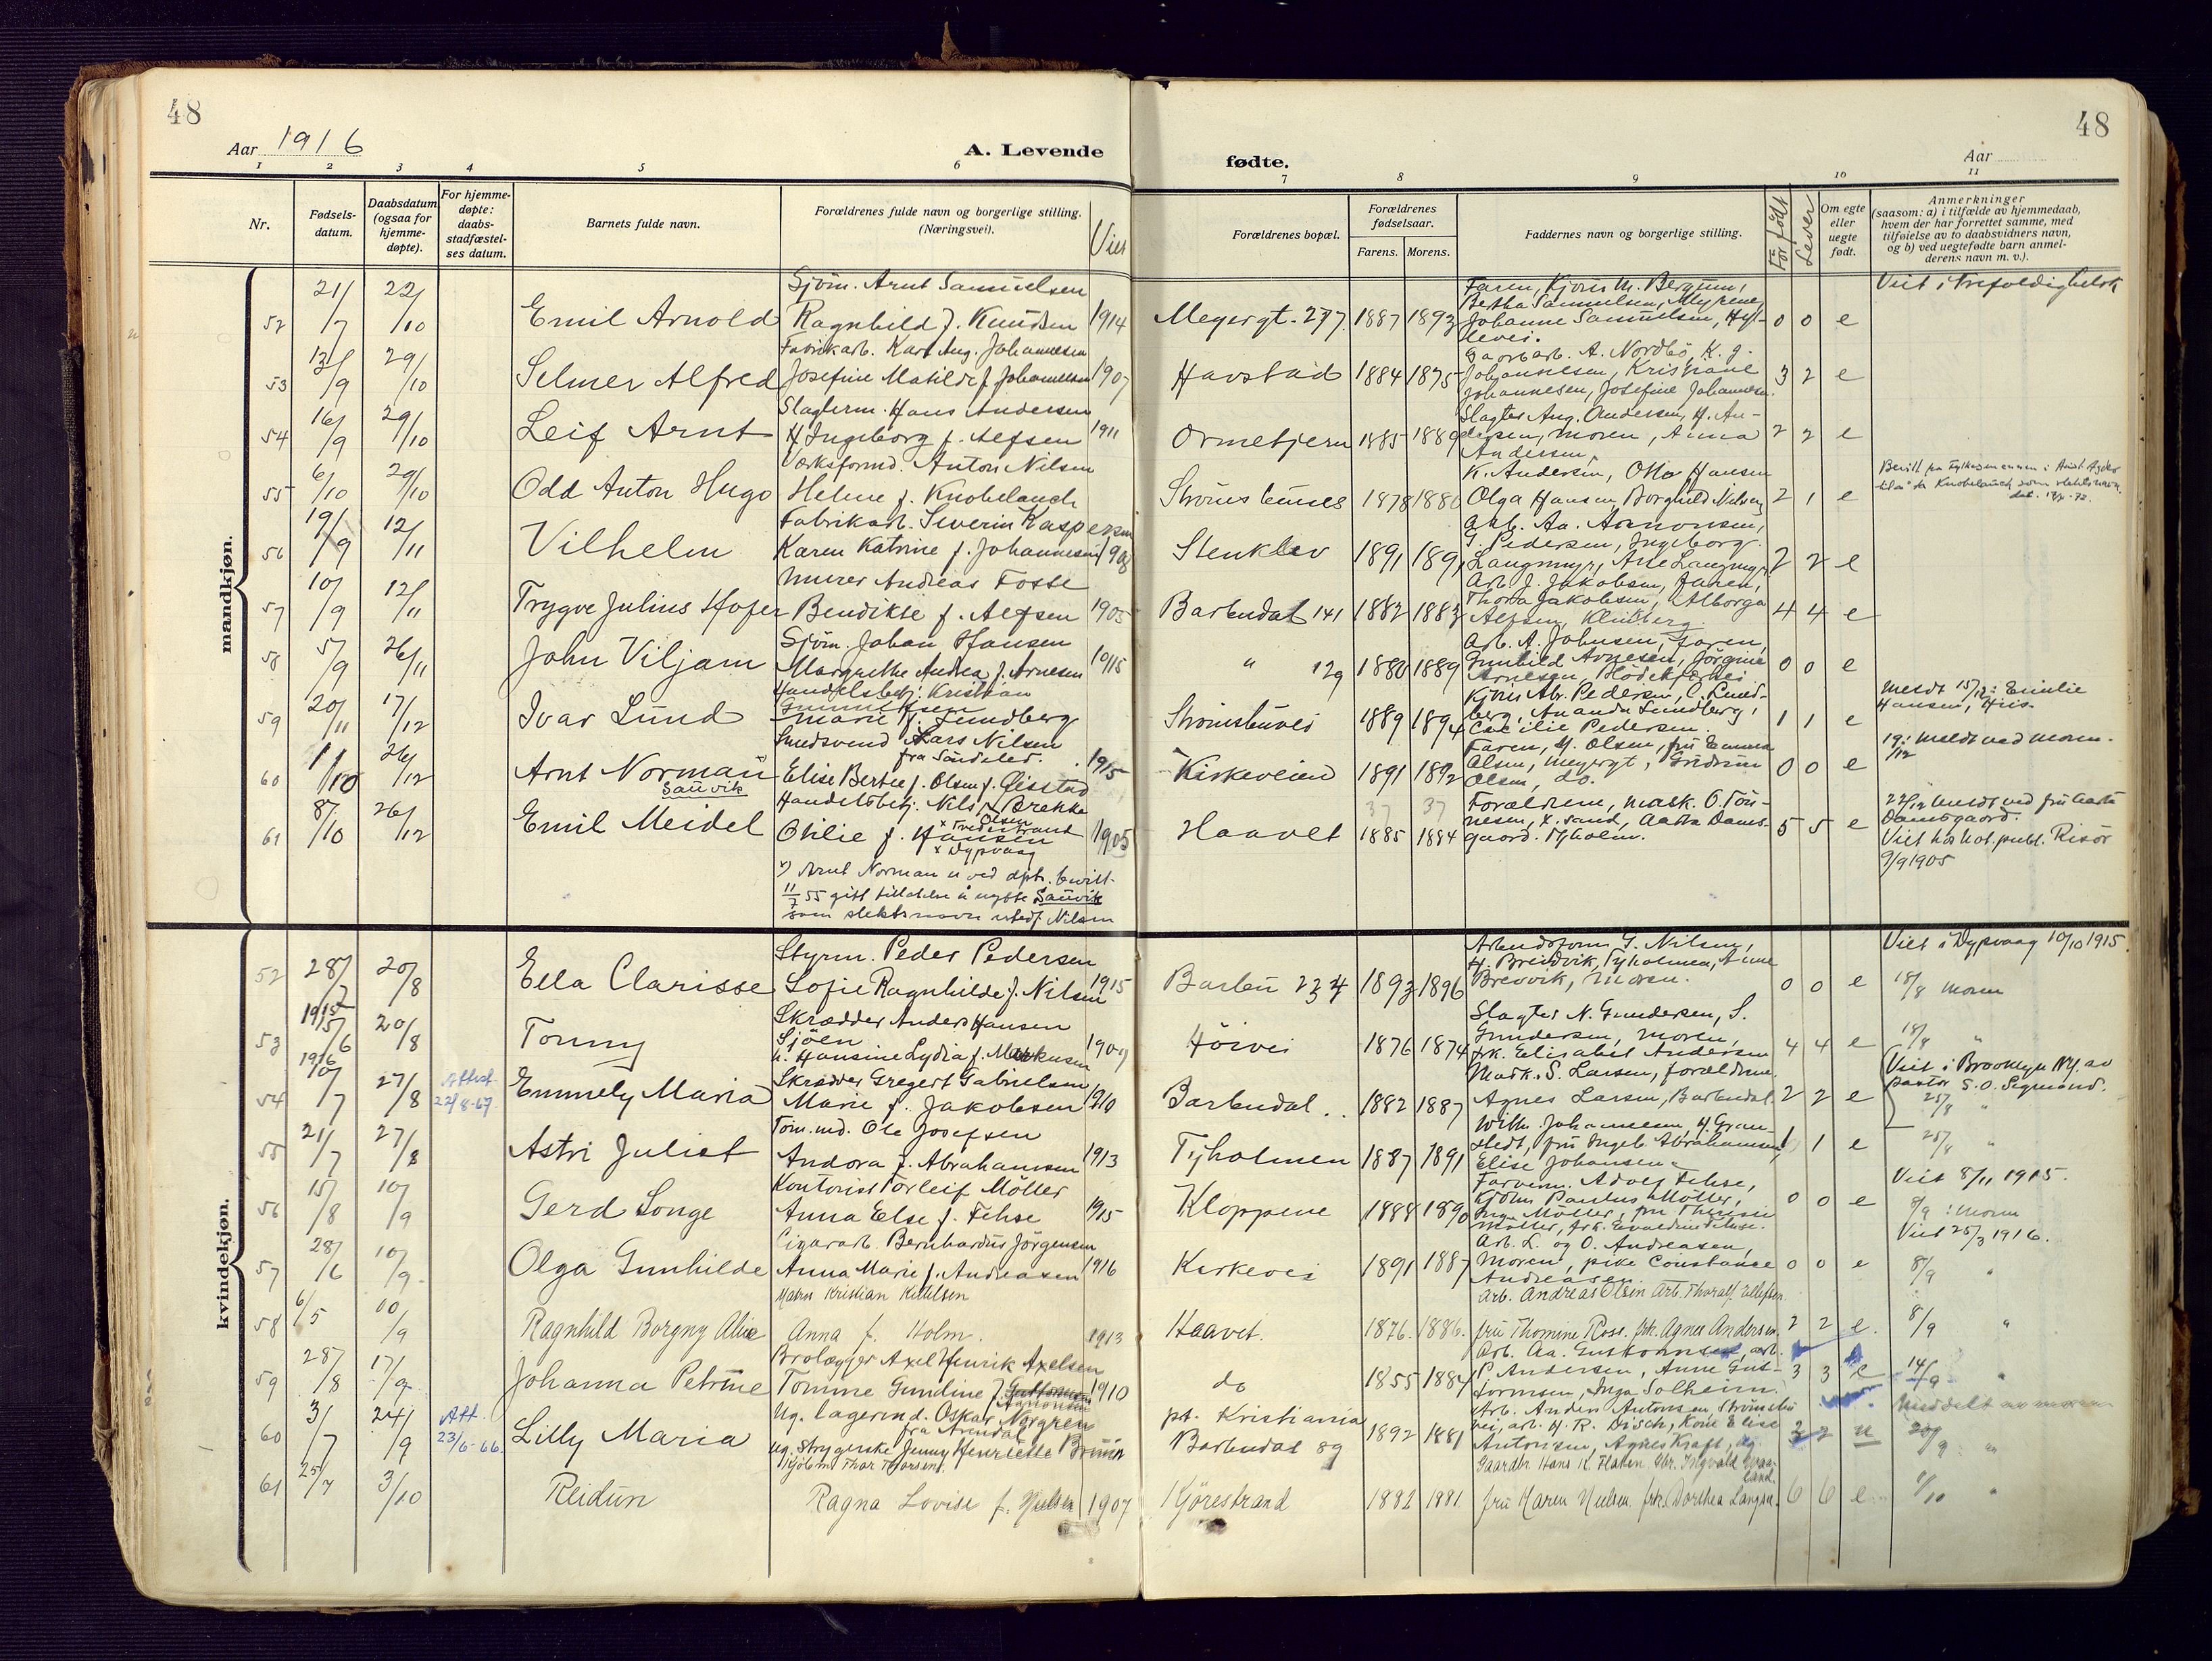 48
Aar 1916
A. Levende
1 2 3 4 5 6
Nr.
Fødsels-
datum.
Daabsdatum
(ogsaa for
hjemme-
døpte).
For hjemme-
døpte:
daabs-
stadfæstel-
ses datum.
Barnets fulde navn.
Forældrenes fulde navn og borgerlige stilling.
(Næringsvei).
Viet
mandkjøn.
52 21/7 22/10 Emil Arnold
Sjöm. Arnt Samuelsen
Ragnhild f. Knudsen 1914
53 13/9 29/10 Selmer Alfred
Fabrikarb. Karl Aug. Johannesen
Josefine Matilde f. Johannesen 1907
54 16/9 29/10 Leif Arnt
Slagterm. Hans Andersen
H Ingeborg f. Alfsen 1911
55 6/10 29/10 Odd Anton Hugo
Værksformd. Anton Nilsen
Helene f. Knobelauch
56 19/9 12/11 Vilhelm
Fabrikarb. Severin Kaspersen
Karen Katrine f. Johannesen 1908
57 10/9 12/11 Trygve Julius Hofer
Murer Andreas Fosse
Bendikte f. Alfsen 1905
58 5/9 26/11 John Viljam
Sjöm. Johan Hansen
Margrethe Andrea f. Arnesen 10/15
59 20/11 17/12 Ivar Lund
Handelsbetj. Kristian
Marie f. Lundberg
60 11/10 26/12 Arnt Norman
Sauvik
Smedsvend Lars Nilsen
fra Söndeled. 1915
Elise Bertee f. Olsen f. Qisstad
61 8/10 26/12 Emil Meidel
Handelsbetj. Nils Brekke
Otilie f. Hansen 1905
Olsen
x Dypvaag
x) Arnt Norman er ved dpts. bevill.
11/7 55 gitt tillatelse å nytte Sauvik
som slektsnavn istedf. Nilsen
kvindekjøn.
52 28/7 20/8 Ella Clarisse
Styrm. Peder Pedersen
Sofie Ragnhilde f. Nilsen 1915
53 1915 5/6 20/8 Tonny
Skrædder Anders Hansen
Sjöen
h. Hansine Lydia f. Markusen 1909
54 1916 10/7 27/8 Attest 22/8-67. Emmely Maria
Skrædder Gregert Gabrielsen
Marie f. Jakobsen 1910
55 21/7 27/8 Astri Juliet
Töm.md. Ole Josefsen
Andora f. Abrahamsen 1913
56 15/8 10/9 Gerd Songe
Kontorist Torleif Möller
Anna Else f. Fehse 1915
57 28/6 10/9 Olga Gunhilde
Cigararb. Bernhardus Jörgensen
Anna Marie f. Andreasen 1916
58 6/5 10/9 Ragnhild Borgny Alice
Matros Kristian Kittilsen
Anna f. Holm. 1913
59 28/8 17/9 Johanna Petrine
Brolægger Axel Henrik Axelsen
Tomine Gundine f. Guttormsen 1910
60 3/7 24/9 Att. 23/6-66. Lilly Maria
Ug. lagermd. Oskar Norgren
fra Arendal
ug. Strygerske Jenny Henriette Bruun
61 25/7 3/10 Reidun
Kjöbm. Thor Thorsen.
Ragna Lovise f. Nielsen 1907
48
fødte.
Aar
7 8 9 10 11
Forældrenes bopæl.
Forældrenes
fødselsaar.
Farens. Morens.
Faddernes navn og borgerlige stilling.
För födt
Lever
Om egte
eller
uegte
født.
Anmerkninger
(saasom: a) i tilfælde av hjemmedaab,
hvem der har forrettet samme, med
tilføielse av to daabsvidners navn,
og b) ved uegtefødte barn anmel-
derens navn m. v.).
Meyergt. 277. 1887 1893
Faren, Kjöris M. Bergum,
Bertha Samuelsen, Myrene,
Johanne Samuelsen, Hyl-
levei. 0 0 e
Viet i Trefoldighetsk
Havstad 1884 1875
Gaardarb. A. Nordbö, K. J.
Johannesen, Kristiane
Johannesen, Josefine Johannesen. 3 2 e
Ormetjern 1885 1889
Slagter Aug. Andersen, H. An-
dersen, moren, Anna
Andersen 2 2 e
Strömsbunes 1878 1880
K. Andersen, Otto Hansen
Olga Hansen, Borghild Nilsen 2 1 e
Stenklev 1891 1891
Arb. Aa. Aanonsen,
G. Pedersen, Ingeborg
Langmyr, Ane Langmyr 2 2 e
Barbudal 141 1882 1883
Arb. J. Jakobsen, Faren,
Thora Jakobsen, Valborga
Alfsen, Klubberg. 4 4 e
" 129 1880 1889
Arb. A. Johnsen, Faren,
Gunhild Arnesen, Jörgine
Arnesen, 0 0 e
Strömsbuvei 1889 1894
Kjöris Ab. Pedersen, C. Lund-
berg, Ananda Lundberg,
Cecilie Pedersen. 1 1 e
Meldt 15/12: Emilie
Hansen, Hris.
Kirkeveien 1891 1892
Faren, M. Olsen, fru Emma
Olsen, Meyergt, Gudrun
Olsen, do. 0 0 e
19/12: meldt ved Moren.
Haavet 1885 1884
37 37
Forældrene, mask. O. Tön-
nesen, K. sand, Aasta Dams-
gaard. Tyholm. 5 5 e
22/12 meldt ved fru Aasta
Damsgaard.
Viet hos not. publ. Risör
9/9 1905
Barbu 234 1893 1896
Arbeidsform. G. Nilsen,
H. Breidvik, Tyholmen, Anne
Brevvik, Moren. 0 0 e
Viet i Dypvaag 10/10 1915.
18/8 Moren
Höivei 1876 1874
Slagter N. Gundersen, S.
Gundersen, moren,
frk. Elisabet Andersen 4 4 e
18/8 "
Barbudal. 1882 1887
Mask. S. Larsen, forældrene.
Agnes Larsen, Barbudal. 2 2 e
Viet i Brooklyn N.Y. av
pastor S. O. Sigmond.
25/8 "
Tyholmen 1887 1891
With. Johannesen, H. Gran-
stedt, fru Ingeb. Abrahamsen,
Elise Johansen. 1 1 e
25/8 "
Kloppene 1888 1890
Farverm. Adolf Fehse,
Kjöbm. Paulus Möller,
Inga Möller, fru Therese
Möller, frk. Evaldine Fehse. 0 0 e
Viet 8/11 1915.
8/9 : Moren
Kirkevei 1891 1887
Arb. L. og O. Andreasen,
Moren, pike Constance
Andreasen 0 0 e
Viet 25/3 1916.
8/9 "
Haavet. 1876. 1886.
Arb. Andreas Olsen Arb. Thoralf Ellefsen
fru Thomine Ross. frk. Agnes Andersen. 2 2 e.
8/9 "
do 1855 1884
Arb. Aa. Guttormsen, arb.
P. Andersen, Anne Gut-
tormsen, Inga Solheim. 3 3 e
14/9 "
pt. Kristiania
Barbudal 89 1892 1881
Arb. Anders Antonsen Strömsbu
vei, arb. H. R. Disch, Kone Elise
Antonsen, Agnes Kraft, ug. 3 2 u
Meddelt av moren
20/9 "
Kjörestrand 1882 1881
Gaardbr. Hans K. Flaten. Gbr. Ingvald Vraa-
land.
fru Maren Nielsen. frk. Dorthea Langsn. 6 6 e
1/10 "